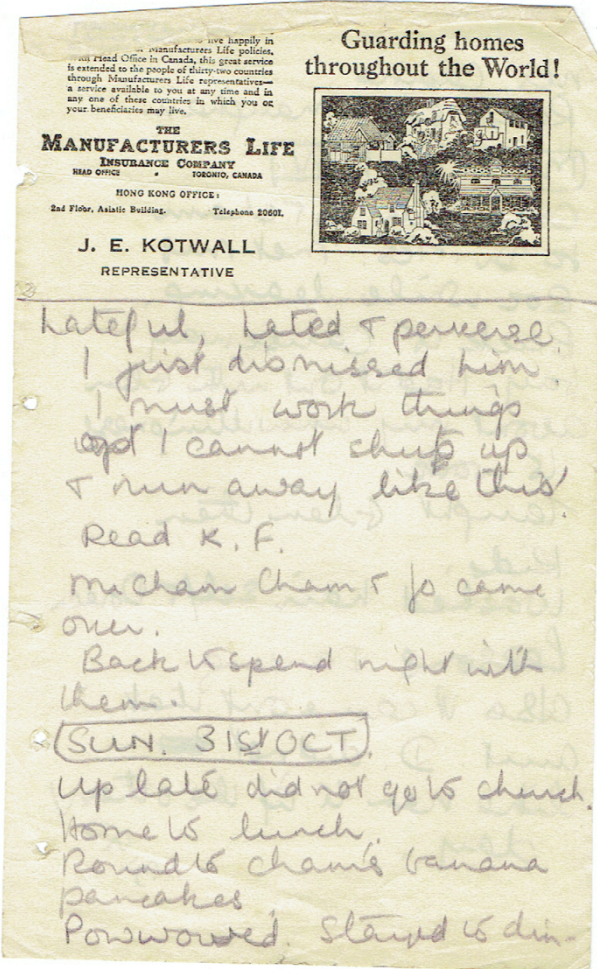 live happily in
Manufacturers Life policies.
Head Office in Canada, this great service
is extended to the people of thirty-two countries
through Manufacturers Life representatives—
a service available to you at any time and in
any one of these countries in which you or
your beneficiaries may live.
THE
MANUFACTURERS LIFE
INSURANCE COMPANY
HEAD OFFICE • TORONTO, CANADA
HONG KONG OFFICE:
2nd Floor, Asiatic Building. Telephone 20601.
J. E. KOTWALL
REPRESENTATIVE
Guarding homes
throughout the World!
hateful, hated & perverse.
I just dismissed him.
I must work things
out I cannot shut up
& run away like this.
Read K. F.
Cham & Jo came
over.
Back to spend night with
them.
SUN. 31st OCT.
Up late did not go to church.
Home to lunch.
Round to Cham's banana
pancakes
Powwowed. Stayed to din-